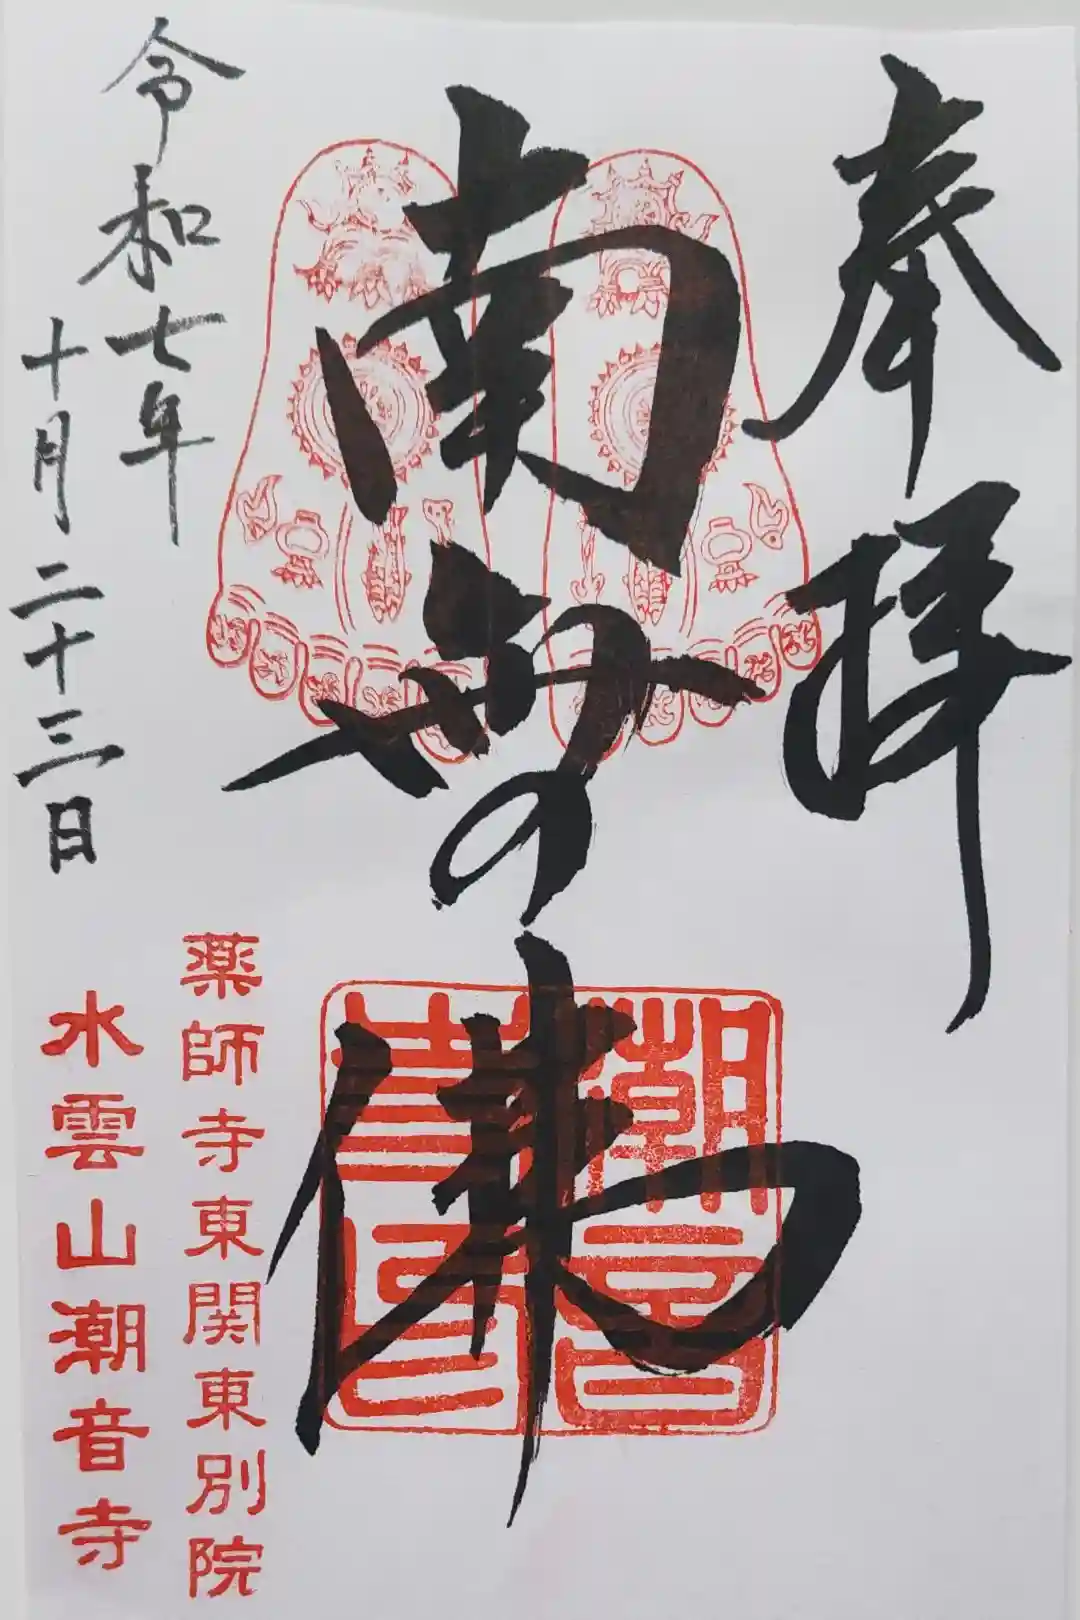 奉拝
南無佛
潮音
寺印
令和七年
十月二十三日
薬師寺東関東別院
水雲山潮音寺